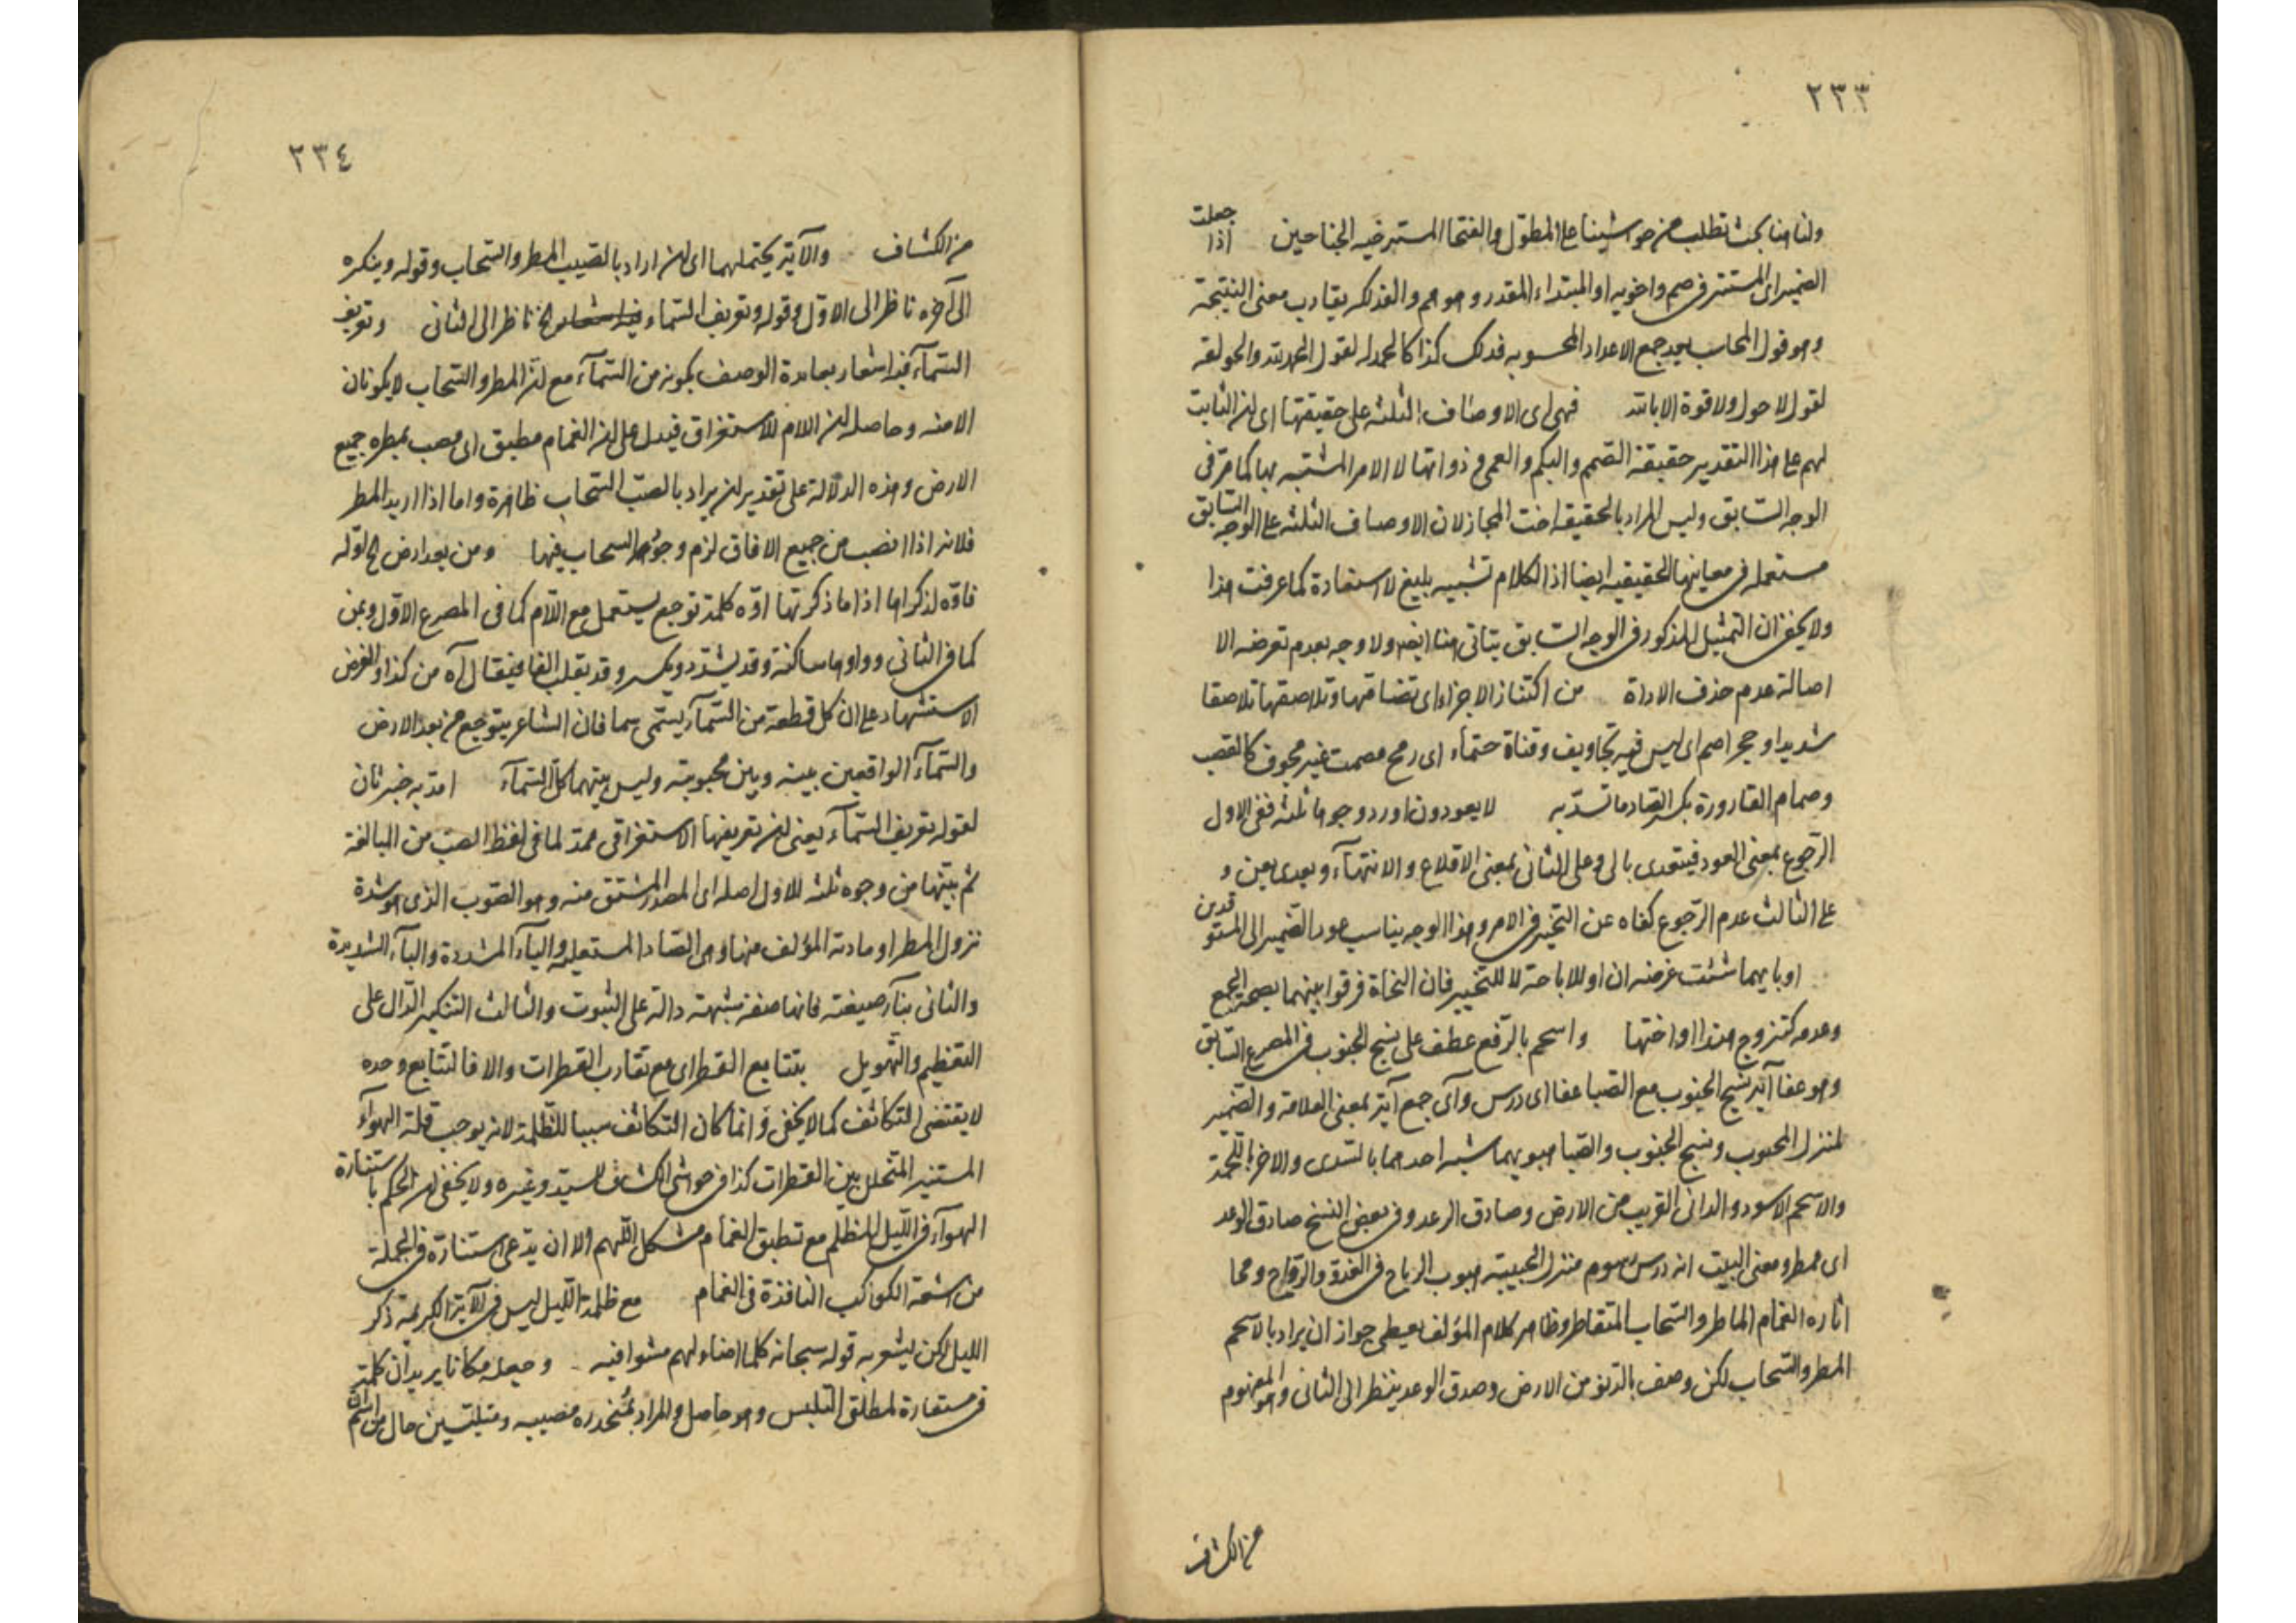 ٢٣٣
ولنا هنا بحث تطلب من حواشينا على المطول والفتخا المسترخيه الجناحين اذا جعلت
الضمير اى المستتر فى صم واخويه او المبتداء المقدر وهو هم والفذلكه يقارب معنى النتيجة
وهو قول المحاسب بعد جمع الاعداد المحسوبه فذلك كذا كالحمدله لقول الحمد لله والحولقه
لقول لا حول ولا قوة الا بالله فهى اى الاوصاف الثلثه على حقيقتها اى ان الثابت
لهم على هذا التقدير حقيقة الصمم والبكم والعمى فى ذواتها لا الامر المشتبه بها كما مر فى
الوجه السابق وليس المراد بالحقيقه اخت المجاز لان الاوصاف الثلثه على الوجه السابق
مستعمله فى معانيها الحقيقيه ايضا اذ الكلام تشبيه بليغ لا استعارة كما عرفت هذا
ولا يخفى ان التمثيل المذكور فى الوجه السابق يتاتى هنا ايضا ولا وجه بعدم تعرضه الا
اصالة عدم حذف الاداة من اكتناز الاجزاء اى تضامها وتلاصقها تلاصقا
شديدا وحجر اصم اى ليس فيه تجاويف وقناة صماء اى رمح مصمت غير مجوف كالقصب
وصمام القارورة بكسر الصاد ما تسد به لا يعودون اورد وجوها ثلثه ففى الاول
الرجوع بمعنى العود فيتعدى بالى وعلى الثانى بمعنى الاقلاع والانتهاء ويعدى بعن و
على الثالث عدم الرجوع كناه عن التحير فى الامر وهذا الوجه يناسب عود الضمير الى المستوقدين
او بايهما شئت غرضه ان او للاباحة لا للتخيير فان النحاة فرقوا بينهما بصحة الجمع
وعدمه كتزوج هندا او اختها واسحم بالرفع عطف على نسج الجنوب فى المصرع السابق
وهو عفا آيه نسج الجنوب مع الصبا عفا اى درس وآى جمع آية بمعنى العلامة والضمير
لمنزل المحبوب ونسج الجنوب والصبا هبوبهما شبه احدهما بالسدى والاخر باللحمة
والاسحم الاسود والدانى القريب من الارض وصادق الرعد وفى بعض النسخ صادق الوعد
اى ممطر ومعنى البيت انه درس رسوم منزل الحبيبة هبوب الرياح فى الغدو والرواح ومحا
اثاره الغمام الماطر والسحاب المتقاطر وظاهر كلام المؤلف يعطى جواز ان يراد بالاسحم
المطر والسحاب لكن وصف بالدنو من الارض وصدق الوعد ينظر الى الثانى وهو المفهوم
من الكشاف
٢٣٤
من الكشاف والآية يحتملهما اى ان اراد بالصيب المطر والسحاب وقوله وينكره
الى آخره ناظر الى الاول وقوله وتعريف السماء الخ ناظر الى الثانى وتعريف
السماء فيه اشعار بفايدة الوصف بكونه من السماء مع ان المطر والسحاب لا يكونان
الا منه وحاصله ان اللام للاستغراق فيدل على ان الغمام مطبق اى مصب بمطره جميع
الارض وهذه الدلالة على تقدير ان يراد بالصيب السحاب ظاهرة واما اذا اريد المطر
فلانه اذا انصب من جميع الافاق لزم وجود السحاب فيها ومن بعد ارض الخ اوله
فاوه لذكراها اذا ما ذكرتها اوه كلمة توجع يستعمل مع اللام كما فى المصرع الاول وبمن
كما فى الثانى وواوها ساكنة وقد يشدد ويكسر وقد يقلب الفا فيقال آه من كذا والغرض
الاستشهاد على ان كل قطعة من السماء يسمى سما فان الشاعر يتوجع من بعد الارض
والسماء الواقعين بينه وبين محبوبته وليس بينهما كل السماء امد به خبر ثان
لقوله تعريف السماء يعنى ان تعريفها الاستغراقى ممد لما فى لفظ الصيب من المبالغة
ثم بينها من وجوه ثلثه للاول اصله اى المصدر المشتق منه وهو الصوب الذى هو شدة
نزول المطر او مادته المؤلف منها وهى الصاد المستعليه والياء المشددة والباء الشديدة
والثانى بناء صيغته فانها صفة مشبهة دالة على الثبوت والثالث التنكير الدال على
التعظيم والتهويل بتتابع القطر اى مع تقارب القطرات والا فالتتابع وحده
لا يقتضى التكاثف كما لا يخفى وانما كان التكاثف سببا للظلمة لانه يوجب قلة الهواء
المستنير المتخلل بين القطرات كذا فى حواشى الكشاف للسيد وغيره ولا يخفى ان الحكم باستنارة
الهواء فى الليل المظلم مع تطبق الغمام مشكل اللهم الا ان يدعى استنارته فى الجملة
من اشعة الكواكب النافذة فى الغمام مع ظلمة الليل ليس فى الآية الكريمة ذكر
الليل لكن يشعر به قوله سبحانه كلما اضاء لهم مشوا فيه وجعله مكانا يريد ان كلمة
فى مستعارة لمطلق التلبس وهو حاصل والمراد بمنحدره مصيبه ومتلبسين حال من